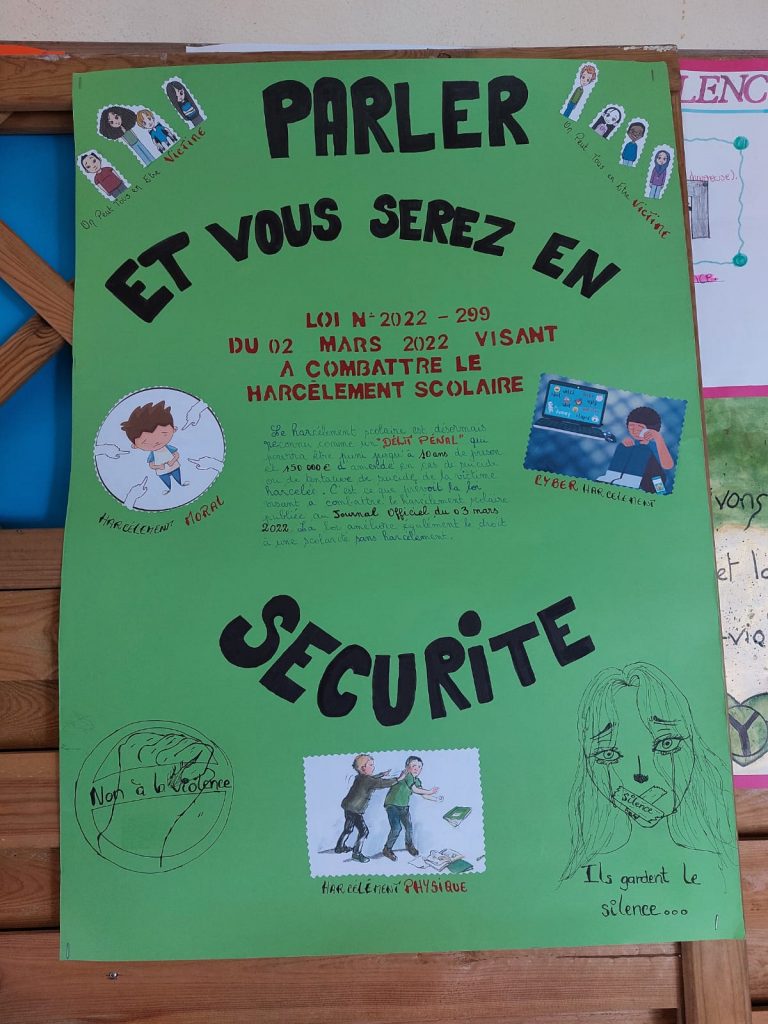 PARLER
On Peut Tous en Être VICTIME
On Peut Tous en Être VICTIME
ET VOUS SEREZ EN
LOI N° 2022 - 299
DU 02 MARS 2022 VISANT
A COMBATTRE LE
HARCÈLEMENT SCOLAIRE
Le harcèlement scolaire est désormais
reconnu comme un "DÉLIT PÉNAL" qui
pourra être puni jusqu'à 10 ans de prison
et 150 000 € d'amende en cas de suicide
ou de tentative de suicide de la victime
harcelée. C'est ce que prévoit la loi
visant à combattre le harcèlement scolaire
publiée au Journal Officiel du 03 mars
2022. La loi améliore également le droit
à une scolarité sans harcèlement.
HARCÈLEMENT MORAL
CYBER HARCÈLEMENT
SÉCURITE
Non à la violence
HARCÈLEMENT PHYSIQUE
Silence
Ils gardent le
silence...
LENC
dangereuse).
NCE.
ivons
et la
-vio
Y